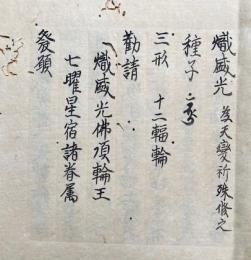 熾盛光 為天變祈殊修之
種子
三形 十二輻輪
勸請
熾盛光佛頂輪王
七曜星宿諸眷属
發願